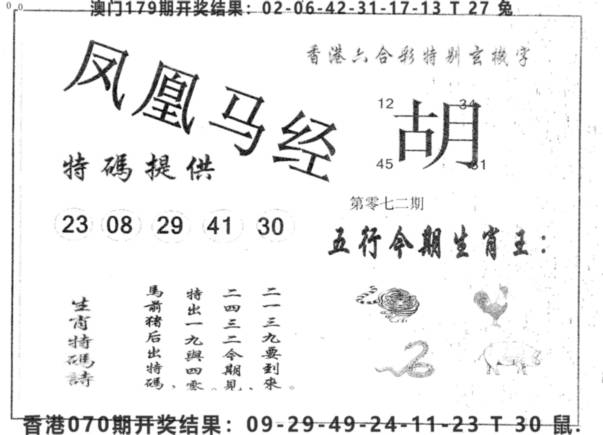 澳门179期开奖结果：02-06-42-31-17-13 T 27 兔
香港六合彩特别玄機字
凤凰马经
特碼提供
23 08 29 41 30
12 34
胡
45 31
第零七二期
五行今期生肖王：
二一三九要到來。
二四三二今期見、
特出一九與四零。
馬前猪后出特碼、
生肖特碼詩
香港070期开奖结果：09-29-49-24-11-23 T 30 鼠.